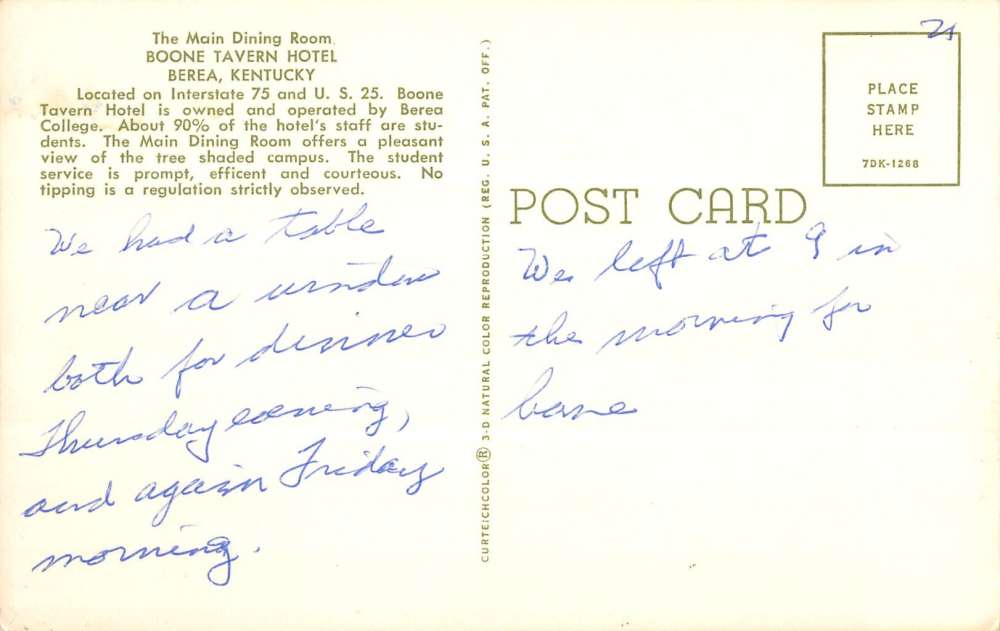 The Main Dining Room
BOONE TAVERN HOTEL
BEREA, KENTUCKY
Located on Interstate 75 and U. S. 25. Boone
Tavern Hotel is owned and operated by Berea
College. About 90% of the hotel's staff are stu-
dents. The Main Dining Room offers a pleasant
view of the tree shaded campus. The student
service is prompt, efficent and courteous. No
tipping is a regulation strictly observed.
We had a table
near a window
both for dinner
Thursday evening,
and again Friday
morning.
CURTEICHCOLOR® 3-D NATURAL COLOR REPRODUCTION (REG. U. S. A. PAT. OFF.)
PLACE
STAMP
HERE
7DK-1268
POST CARD
We left at 9 in
the morning for